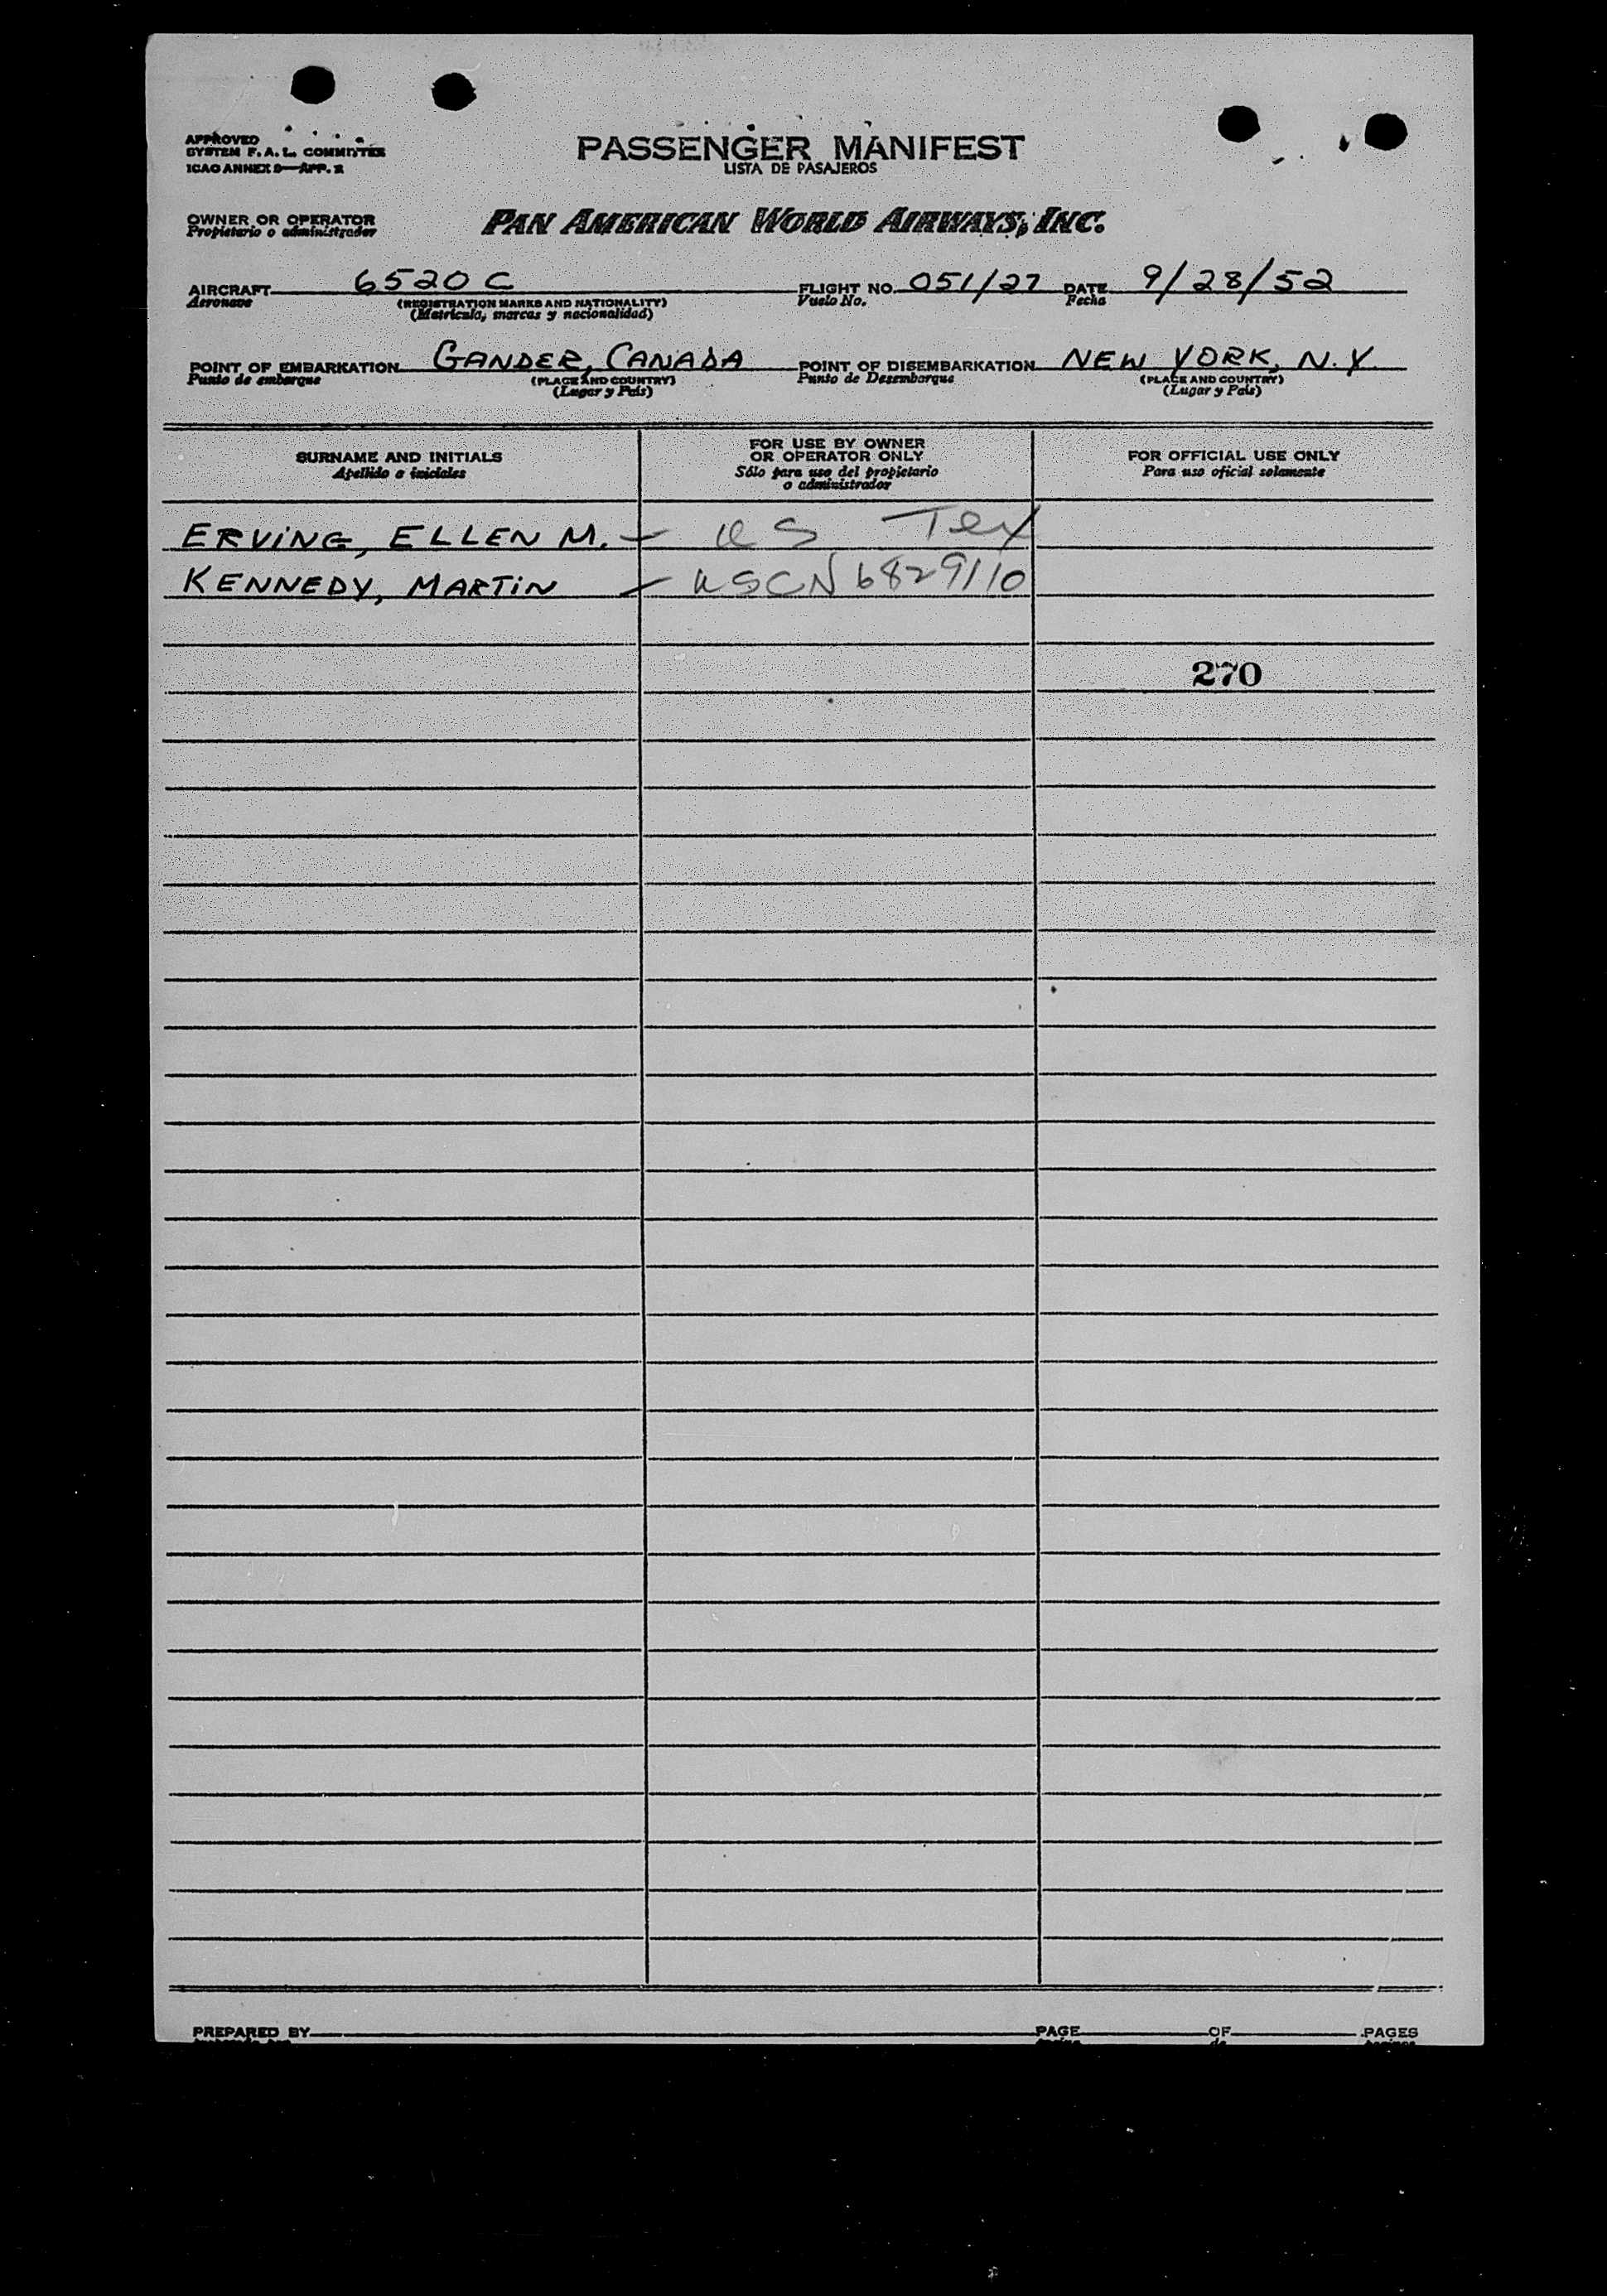 APPROVED
SYSTEM F.A.L. COMMITTEE
ICAO ANNEX 9—APP. 2
PASSENGER MANIFEST
LISTA DE PASAJEROS
OWNER OR OPERATOR
Propietario o administrador
PAN AMERICAN WORLD AIRWAYS, INC.
AIRCRAFT 6520C FLIGHT NO. 051/27 DATE 9/28/52
Aeronave (REGISTRATION MARKS AND NATIONALITY) Vuelo No. Fecha
(Matrícula, marcas y nacionalidad)
POINT OF EMBARKATION GANDER, CANADA POINT OF DISEMBARKATION NEW YORK, N.Y.
Punto de embarque (PLACE AND COUNTRY) Punto de Desembarque (PLACE AND COUNTRY)
(Lugar y País) (Lugar y País)
SURNAME AND INITIALS
Apellido e iniciales
FOR USE BY OWNER
OR OPERATOR ONLY
Sólo para uso del propietario
o administrador
FOR OFFICIAL USE ONLY
Para uso oficial solamente
ERVING, ELLEN M. — US Tex
KENNEDY, MARTIN — USCN 6829110
270
PREPARED BY PAGE OF PAGES